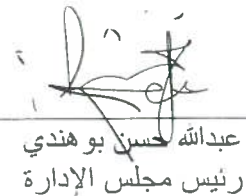 عبدالله حسن بو هندي
رئيس مجلس الإدارة